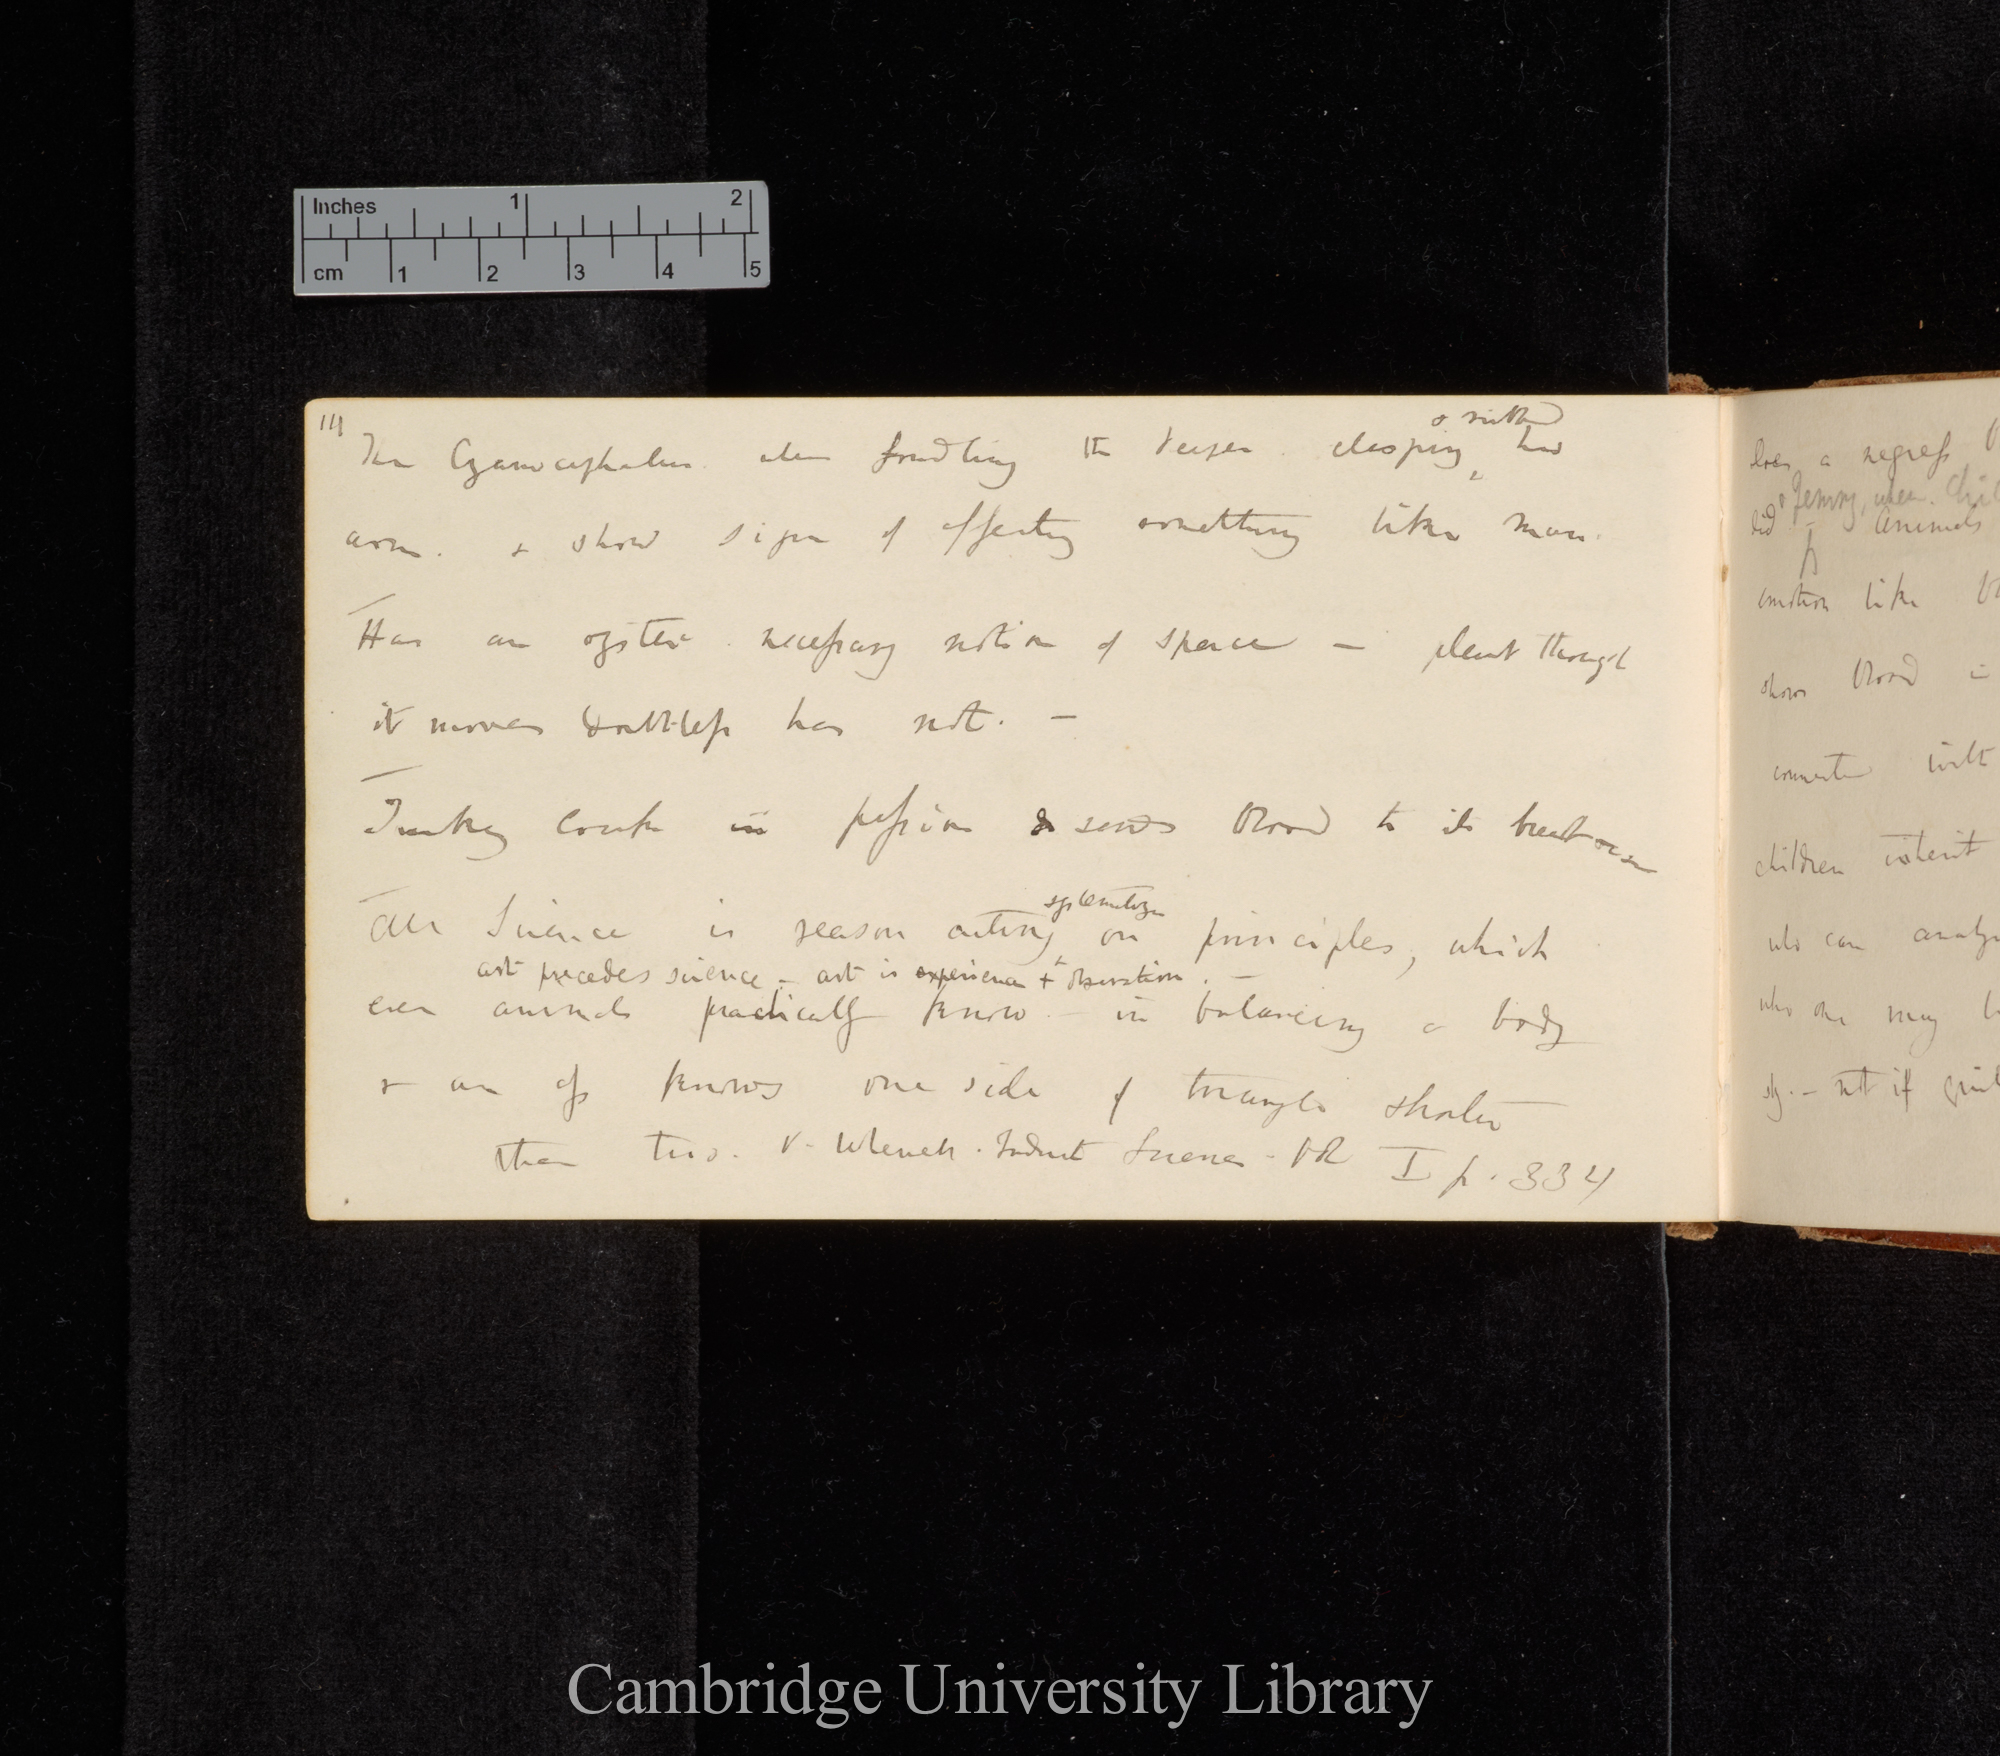 Inches 1 2
cm 1 2 3 4 5
14
The Cyanocephalus when fondling the keeper clasping & rubbed his
arm. & show signs of affecting something like man.
Has an oyster necessary notion of space — plant though
it moves doubtless has not. —
Turkey Cock in passion & sends blood to its breast
All Science is reason acting systematizing on principles, which
art precedes science — art is experience & observation. —
even animals practically know — in balancing a body
& an ass knows one side of triangle shorter
than two. V. Whewell. Induct Science. Vol I p. 334
does a negress
did & Jenny, when
animals
emotion like
shows blood
with
children inherit
who can
who one may
sly. — not if
Cambridge University Library